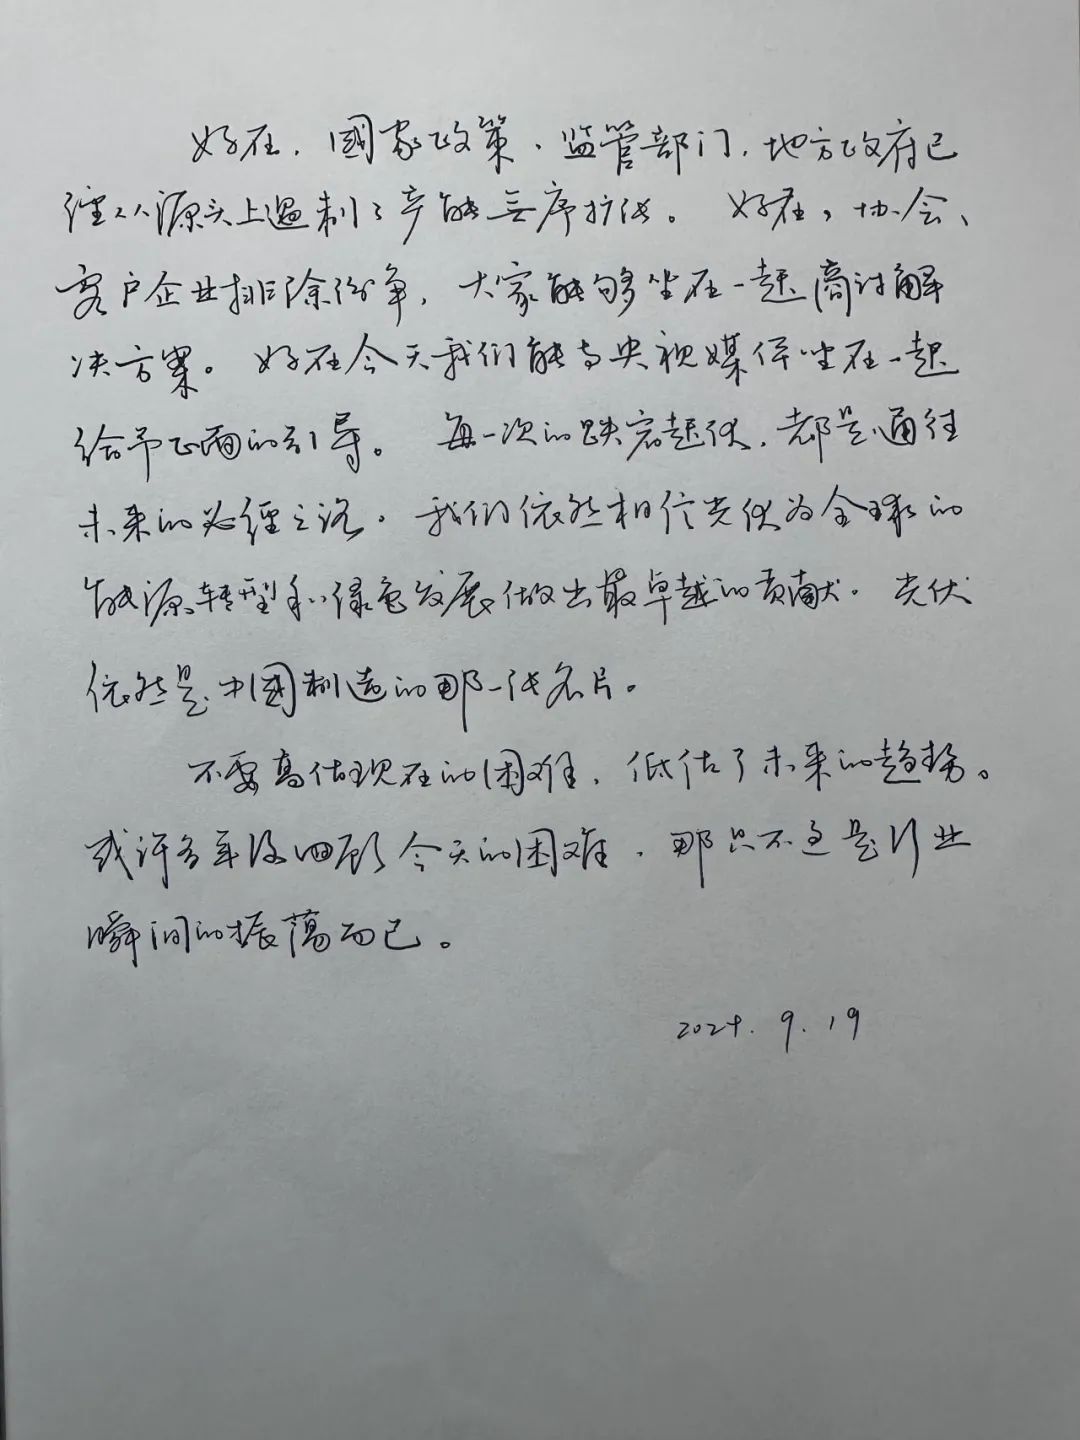 好在，國家政策、监管部门，地方政府已
經从源头上遏制了产能无序扩张。好在，协会、
客户企业排除纷争，大家能够坐在一起商讨解
决方案。好在今天我们能与央视媒体坐在一起
给予正面的引导。每一次的跌宕起伏，都是通往
未来的必經之路。我们依然相信光伏为全球的
能源转型和绿色发展做出最卓越的贡献。光伏
依然是中國制造的那一张名片。
不要高估现在的困难，低估了未来的趋势。
或许多年后回顾今天的困难，那只不过是行业
瞬间的振荡而已。
2024.9.19